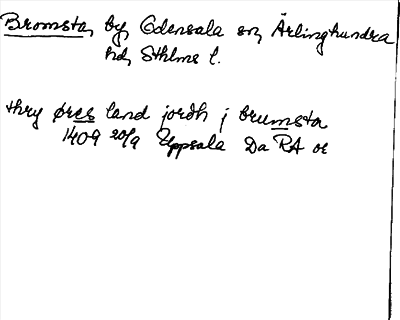 Bromsta, by, Odensala sn, Ärlinghundra
hd, Sthlms l.
thry øres land jordh j brumsta
1409 20/9 Uppsala Da RA or